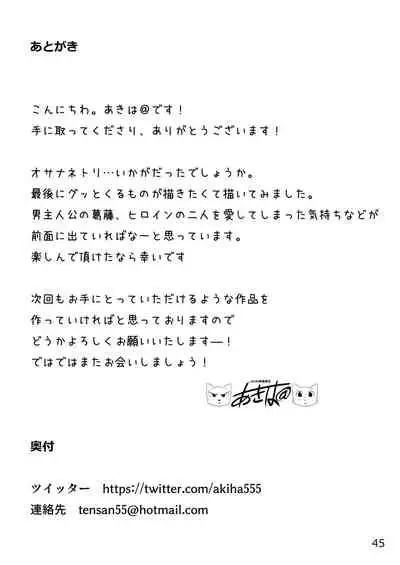 あとがき
こんにちわ。あきは@です！
手に取ってくださり、ありがとうございます！
オサナネトリ…いかがだったでしょうか。
最後にグッとくるものが描きたくて描いてみました。
男主人公の葛藤、ヒロインの二人を愛してしまった気持ちなどが
前面に出ていればなーと思っています。
楽しんで頂けたなら幸いです
次回もお手にとっていただけるような作品を
作っていければと思っておりますので
どうかよろしくお願いいたします―！
ではではまたお会いしましょう！
あきは@
奥付
ツイッター　https://twitter.com/akiha555
連絡先　tensan55@hotmail.com
45